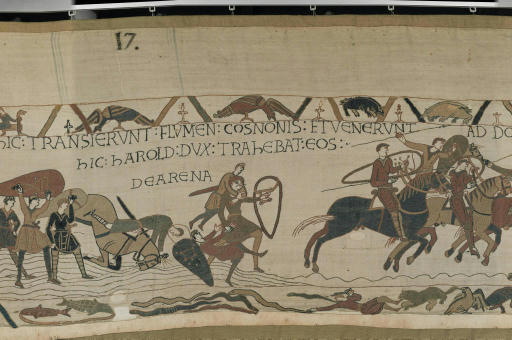 17.
HIC : TRANSIERVNT : FLVMEN : COSNONIS : ET VENERVNT AD DO
hIC : hAROLD : DVX : TRAhEBAT : EOS :
DE ARENA